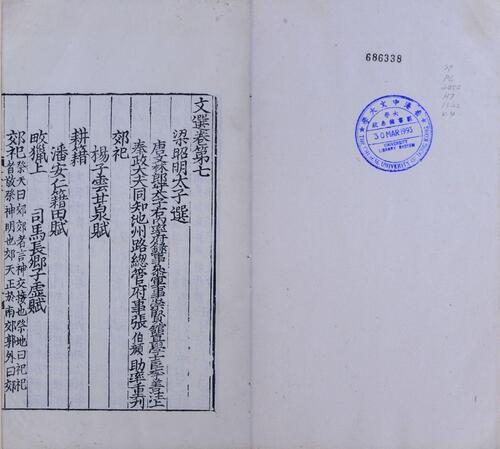 文選卷第七
梁昭明太子選
唐文林郎守太子右內率府錄事參軍事崇賢館直學士臣李善注上
奉政大夫同知池州路總管府事張伯顏助率重刊
郊祀
楊子雲甘泉賦
耕藉
潘安仁籍田賦
畋獵上
司馬長卿子虛賦
郊祀祭天曰郊郊者言神交接也祭地曰祀祀
者敬祭神明也郊天正於南郊郭外曰郊
686338
香港中文大學
大學
圖書館系統
30 MAR 1993
UNIVERSITY
LIBRARY SYSTEM
THE CHINESE UNIVERSITY OF HONG KONG
PL